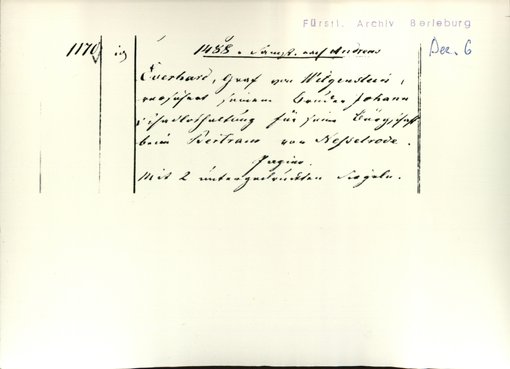 Fürstl. Archiv Berleburg
1170 1488 Samst. nach Andreas Dec. 6
Everhard, Graf von Witgenstein,
verspricht seinem Bruder Johann
Schadloshaltung für seine Bürgschaft
beim Bertram von Nesselrode.
Papier.
Mit 2 untergedrückten Siegeln.